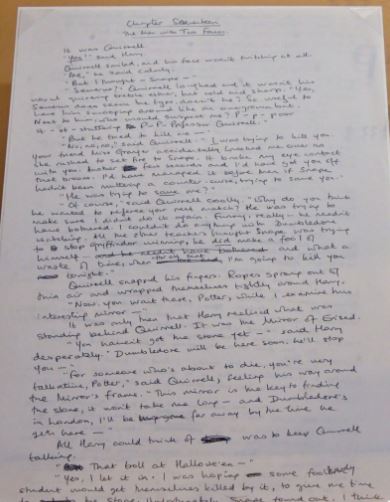 Chapter Seventeen
The Man with Two Faces.
It was Quirrell.
"You!" said Harry.
Quirrell smiled, and his face wasn't twitching at all.
"Me," he said calmly.
"But I thought - Snape -"
"Severus?" Quirrell laughed and it wasn't his
usual quivering treble either, but cold and sharp. "Yes,
Severus does seem the type, doesn't he? So useful to
have him swooping around like an overgrown bat.
Next to him, who would suspect me? P-p-poor
st-st-stuttering P-P-Professor Quirrell."
"But he tried to kill me -"
"No, no, no," said Quirrell. "I was trying to kill you.
Your friend Miss Granger accidentally knocked me over as
she rushed to set fire to Snape. It broke my eye contact
with you. Another few seconds and I'd have got you off
that broom. I'd have managed it before then if Snape
hadn't been muttering a counter-curse, trying to save you."
"He was trying to save me?"
"Of course," said Quirrell coolly. "Why do you think
he wanted to referee your next match? He was trying to
make sure I didn't do it again. Funny, really - he needn't
have bothered. I couldn't do anything with Dumbledore
watching. All the other teachers thought Snape was trying
to stop Gryffindor winning, he did make a fool of
himself - and what a
waste of time, when I'm going to kill you
tonight."
Quirrell snapped his fingers. Ropes sprang out of
thin air and wrapped themselves tightly around Harry.
"Now, you wait there, Potter, while I examine this
interesting mirror -"
It was only then that Harry realised what was
standing behind Quirrell. It was the Mirror of Erised.
"You haven't got the stone yet -" said Harry
desperately. "Dumbledore will be here soon, he'll stop
you -"
"For someone who's about to die, you're very
talkative, Potter," said Quirrell, feeling his way around
the Mirror's frame. "This mirror is the key to finding
the stone, it won't take me long - and Dumbledore's
in London, I'll be far away by the time he
gets here -"
All Harry could think of was to keep Quirrell
talking.
"That troll at Hallowe'en -"
"Yes, I let it in. I was hoping some
student would get themselves killed by it, to give me time
the stone. Unfortunately, Snape found out. I think